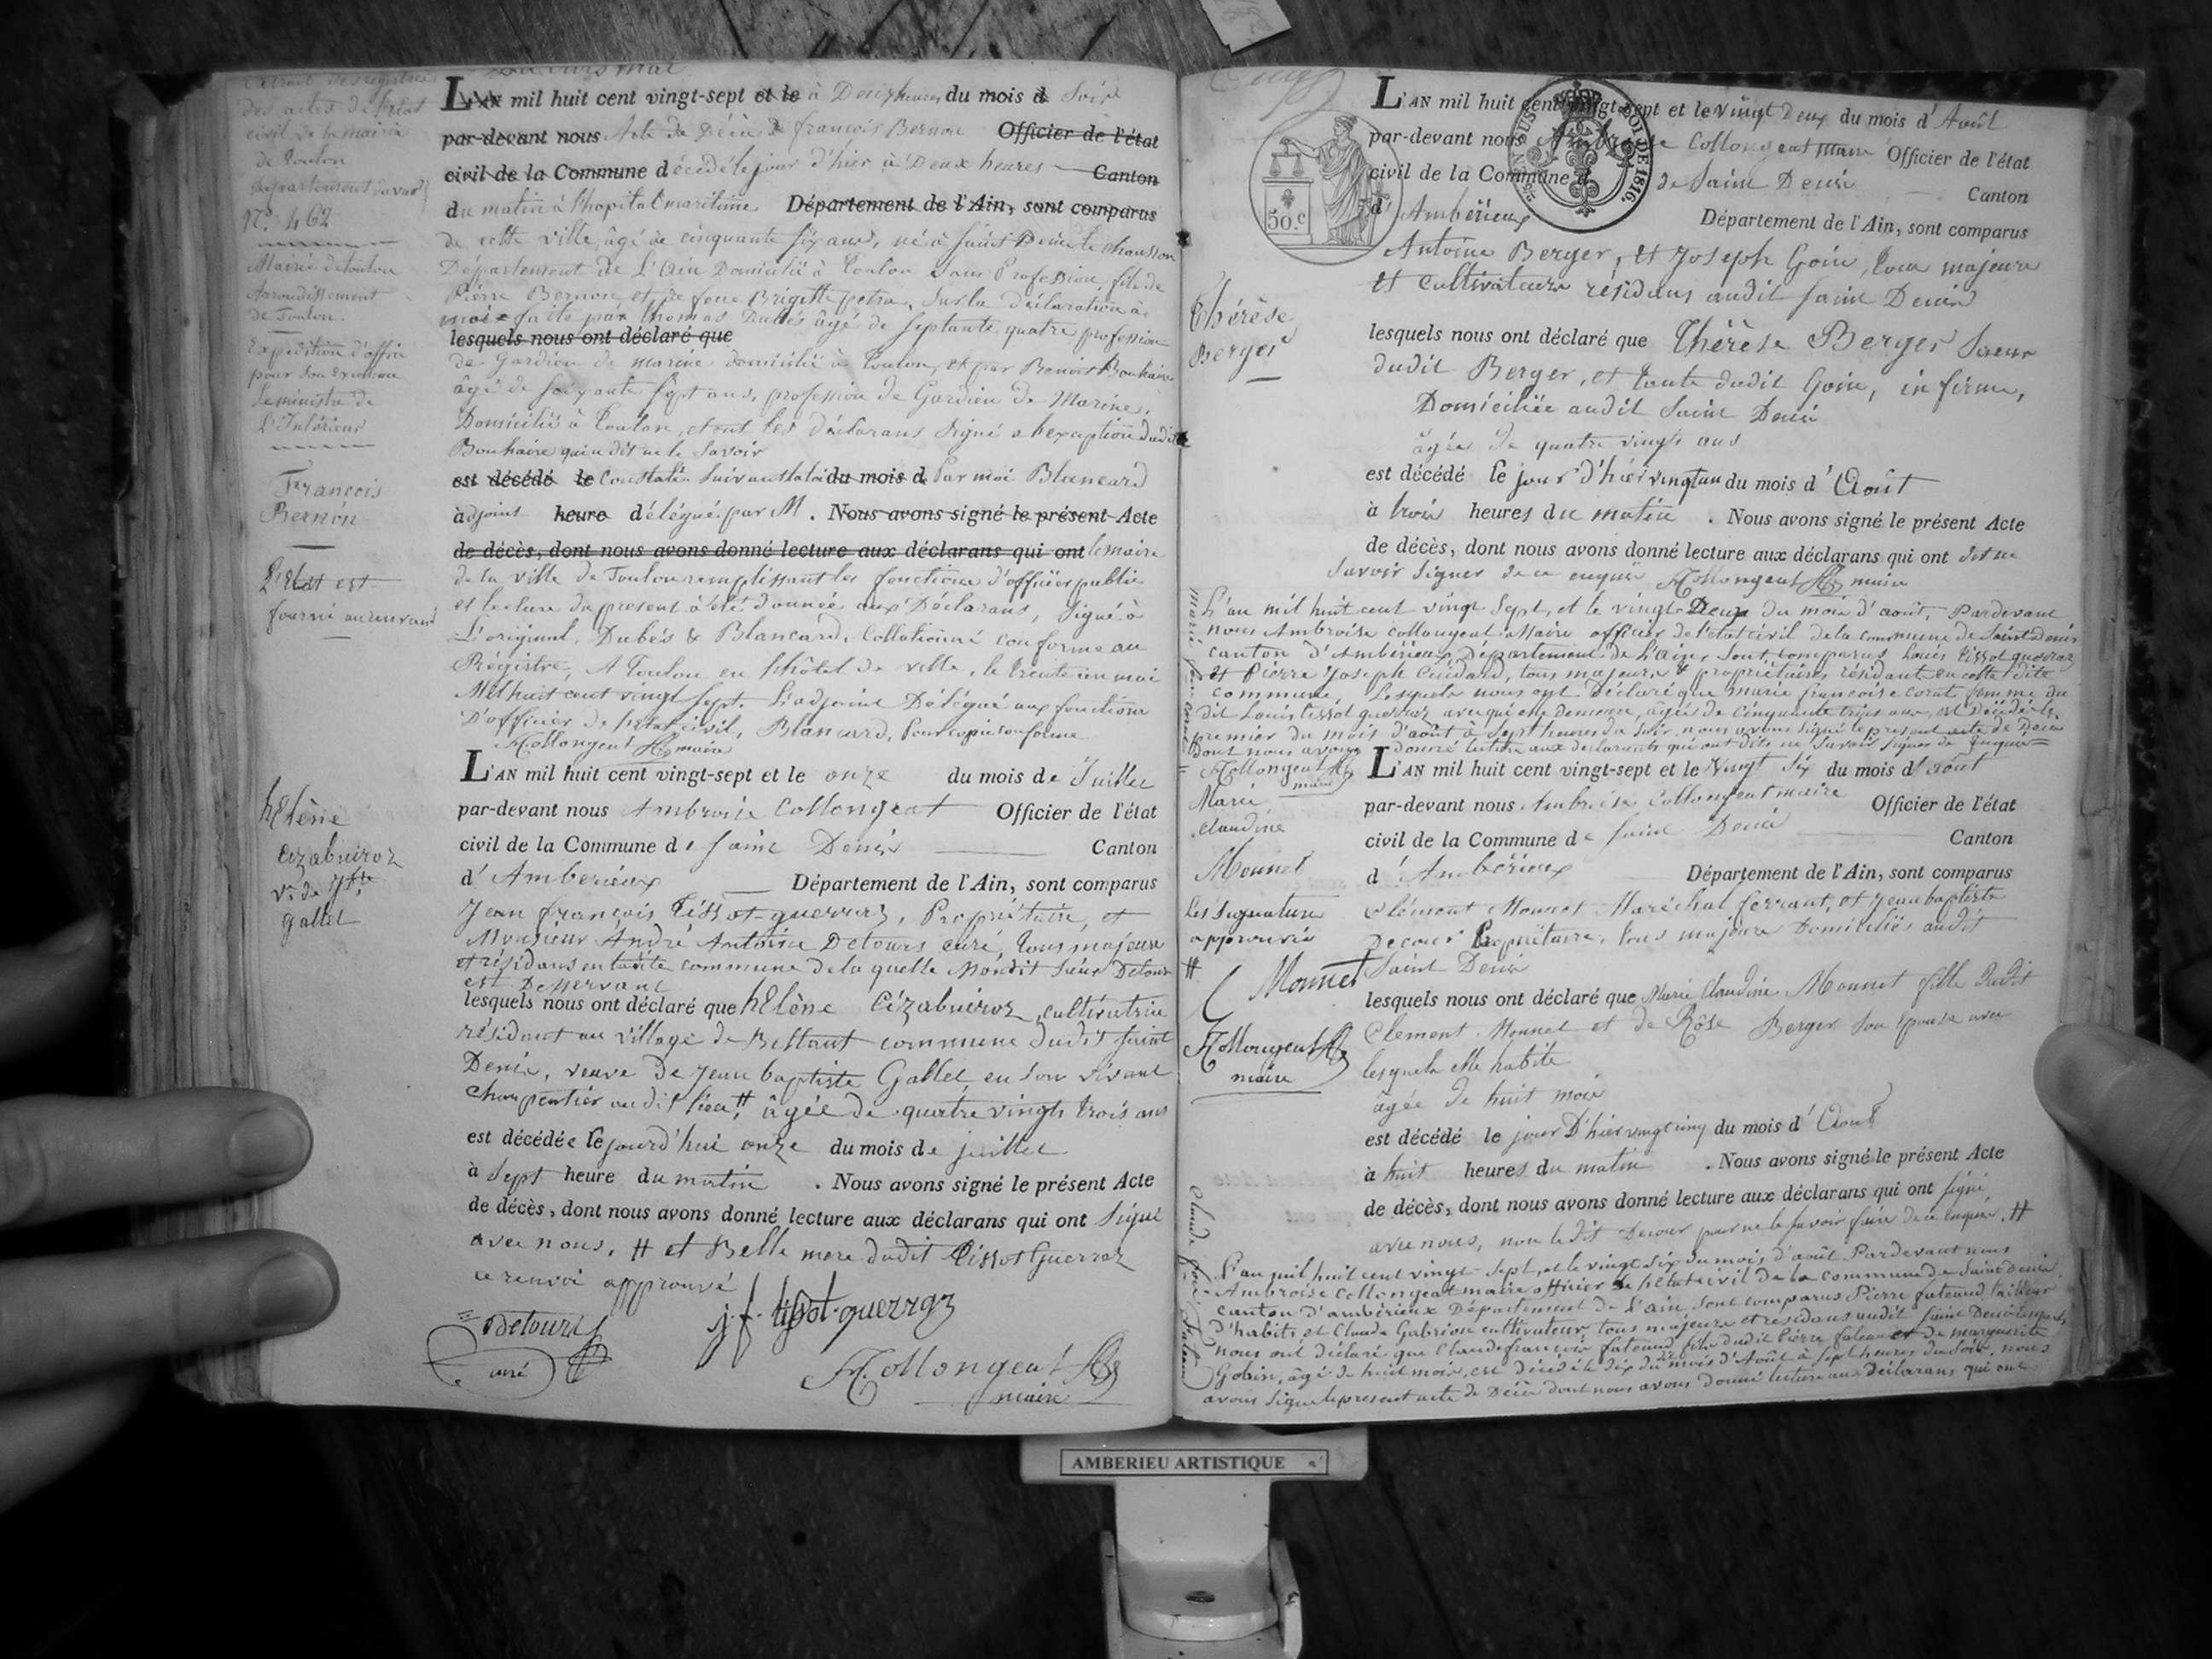 Extrait des registres
des actes de l'etat
civil de la mairie
de Toulon
Département du var
N°. 462
Mairie de toulon
Arrondissement
de Toulon.
Expédition d'office
pour son Excellence
Le ministre de
L'Intérieur
François
Bernon
L'Etat est
fourni
L'AN mil huit cent vingt-sept et le à Deux heures du mois d Soir
par-devant nous Acte de Décès de françois Bernon Officier de l'état
civil de la Commune d écédé le jour d'hier à Deux heures Canton
du matin à l'hopital maritime Département de l'Ain, sont comparus
de cette ville, âgé de cinquante six ans, né à Saint Denis le chausson
Département de L'Ain Domicilié à Toulon Sans Profession, fils de
Pierre Bernon, et de feue Brigitte petra, Sur la déclaration à
moi faite par thomas Dubés âgé de septante quatre profession
lesquels nous ont déclaré que
de Gardien de marine domicilié à Toulon, et par Benoit Bonhaire
âgé de soixante sept ans, profession de Gardien de Marine,
Domicilié à Toulon, et ont les déclarans signé a l'exception dudit
Bonhaire qui a dit ne le Savoir
est décédé le Constaté Suivant la loi du mois d Par moi Blancard
adjoint heure délégué par M. Nous avons signé le présent Acte
de décès, dont nous avons donné lecture aux déclarans qui ont le maire
de la ville de Toulon remplissant les fonctions d'officier public
et lecture du present à été donnée aux Déclarans, signé à
L'original, Dubés & Blancard, Collationné conforme au
Régistre, A Toulon en l'hôtel de ville, le trente un mai
Mil huit cent vingt sept. L'adjoint Délégué aux fonctions
D'officier de l'état civil, Blancard, Pour copie conforme
A Collongeat maire
hélène
Cizabuiroz
Ve. de Jn. Bte
Gallet
L'AN mil huit cent vingt-sept et le onze du mois de Juillet
par-devant nous Ambroise Collongeat Officier de l'état
civil de la Commune de Saint Denis Canton
d' Amberieux Département de l'Ain, sont comparus
Jean françois Tissot-guerraz, Propriétaire, et
Monsieur André Antoine Detours curé, tous majeurs
et résidans en ladite commune de la quelle Mondit Sieur Detours
est Desservant
lesquels nous ont déclaré que hélène Cizabuiroz, cultivatrice
résidant au village de Bettant commune dudit Saint
Denis, veuve de Jean baptiste Gallet en son vivant
charpentier audit lieu,# âgée de quatre vingts trois ans
est décédée le jourd'hui onze du mois de juillet
à Sept heure du matin . Nous avons signé le présent Acte
de décès, dont nous avons donné lecture aux déclarans qui ont signé
avec nous, # et Belle mere dudit Tissot Guerraz
ce renvoi approuvé
Detours
curé
j.f. tissot-guerraz
A Collongeat
maire
50.c
ROI DE 1816.
Thérèse
Berger
L'AN mil huit cent vingt-sept et le vingt Deux du mois d'Août
par-devant nous Ambroise Collongeat maire Officier de l'état
civil de la Commune de Saint Denis Canton
d' Ambérieux Département de l'Ain, sont comparus
Antoine Berger, et Joseph Goin, tous majeurs
et cultivateurs résidans audit Saint Denis
lesquels nous ont déclaré que Thérèse Berger Soeur
dudit Berger, et tante dudit Goin, infirme,
Domiciliée audit Saint Denis
âgée de quatre vingts ans
est décédé le jour d'hier vingt un du mois d'Août
à trois heures du matin . Nous avons signé le présent Acte
de décès, dont nous avons donné lecture aux déclarans qui ont dit ne
savoir signer de ce enquis A Collongeat maire
L'an mil huit cent vingt Sept, et le vingt Deux du mois d'août, Pardevant
nous Ambroise collongeat Maire officier de l'état civil de la commune de Saint Denis
canton d'Ambérieux Département de L'Ain, sont comparus Louis tissot guerraz
et Pierre Joseph Cindard, tous majeurs & propriétaires résidants en cette dite
commune, Lesquels nous ont Déclaré que marie françoise corat femme du
dit Louis tissot guerraz avec qui elle Demeure, âgée de cinquante trois ans, est décédée le
premier du mois d'août à Sept heures du Soir, nous avons signé le present acte de Décès
Dont nous avons donné lecture aux declarants qui ont dits ne Savoir signer de enquis
A Collongeat
maire
Marie
Claudine
Monnet
Les signatures
approuvés
#
Monnet
A Collongeat
maire
L'AN mil huit cent vingt-sept et le Vingt Six du mois d'août
par-devant nous Ambroise Collongeat maire Officier de l'état
civil de la Commune de Saint Denis Canton
d' Ambérieux Département de l'Ain, sont comparus
Clément Monnet Maréchal ferrant, et Jean baptiste
Decour Propriétaire, tous majeurs Domiciliés audit
Saint Denis
lesquels nous ont déclaré que Marie Claudine Monnet fille dudit
Clement Monnet et de Rôse Berger Son Epouse avec
lesquels elle habite
âgée de huit mois
est décédé le jour D'hier vingt cinq du mois d'Août
à huit heures du matin . Nous avons signé le présent Acte
de décès, dont nous avons donné lecture aux déclarans qui ont signé
avec nous, non ledit Decour pour ne le savoir faire de ce enquis. #
L'an mil huit cent vingt-sept, et le vingt six du mois d'août Pardevant nous
Ambroise collongeat maire officier de l'etat civil de la commune de Saint denis
canton d'ambérieux Département de L'ain sont comparus Pierre fateaud, tailleur
d'habits, et Claude Gabrion cultivateur, tous majeurs et résidans audit Saint Denis lesquels
nous ont déclaré que Claude françois fateaud, fils dudit Pierre fateau et de marguerite
Gobin, âgé de huit mois, est décédé le dix du mois d'Août à Sept heures du Soir, nous
avons signé le present acte de Décès dont nous avons donné lecture aux déclarans qui ont
AMBERIEU ARTISTIQUE